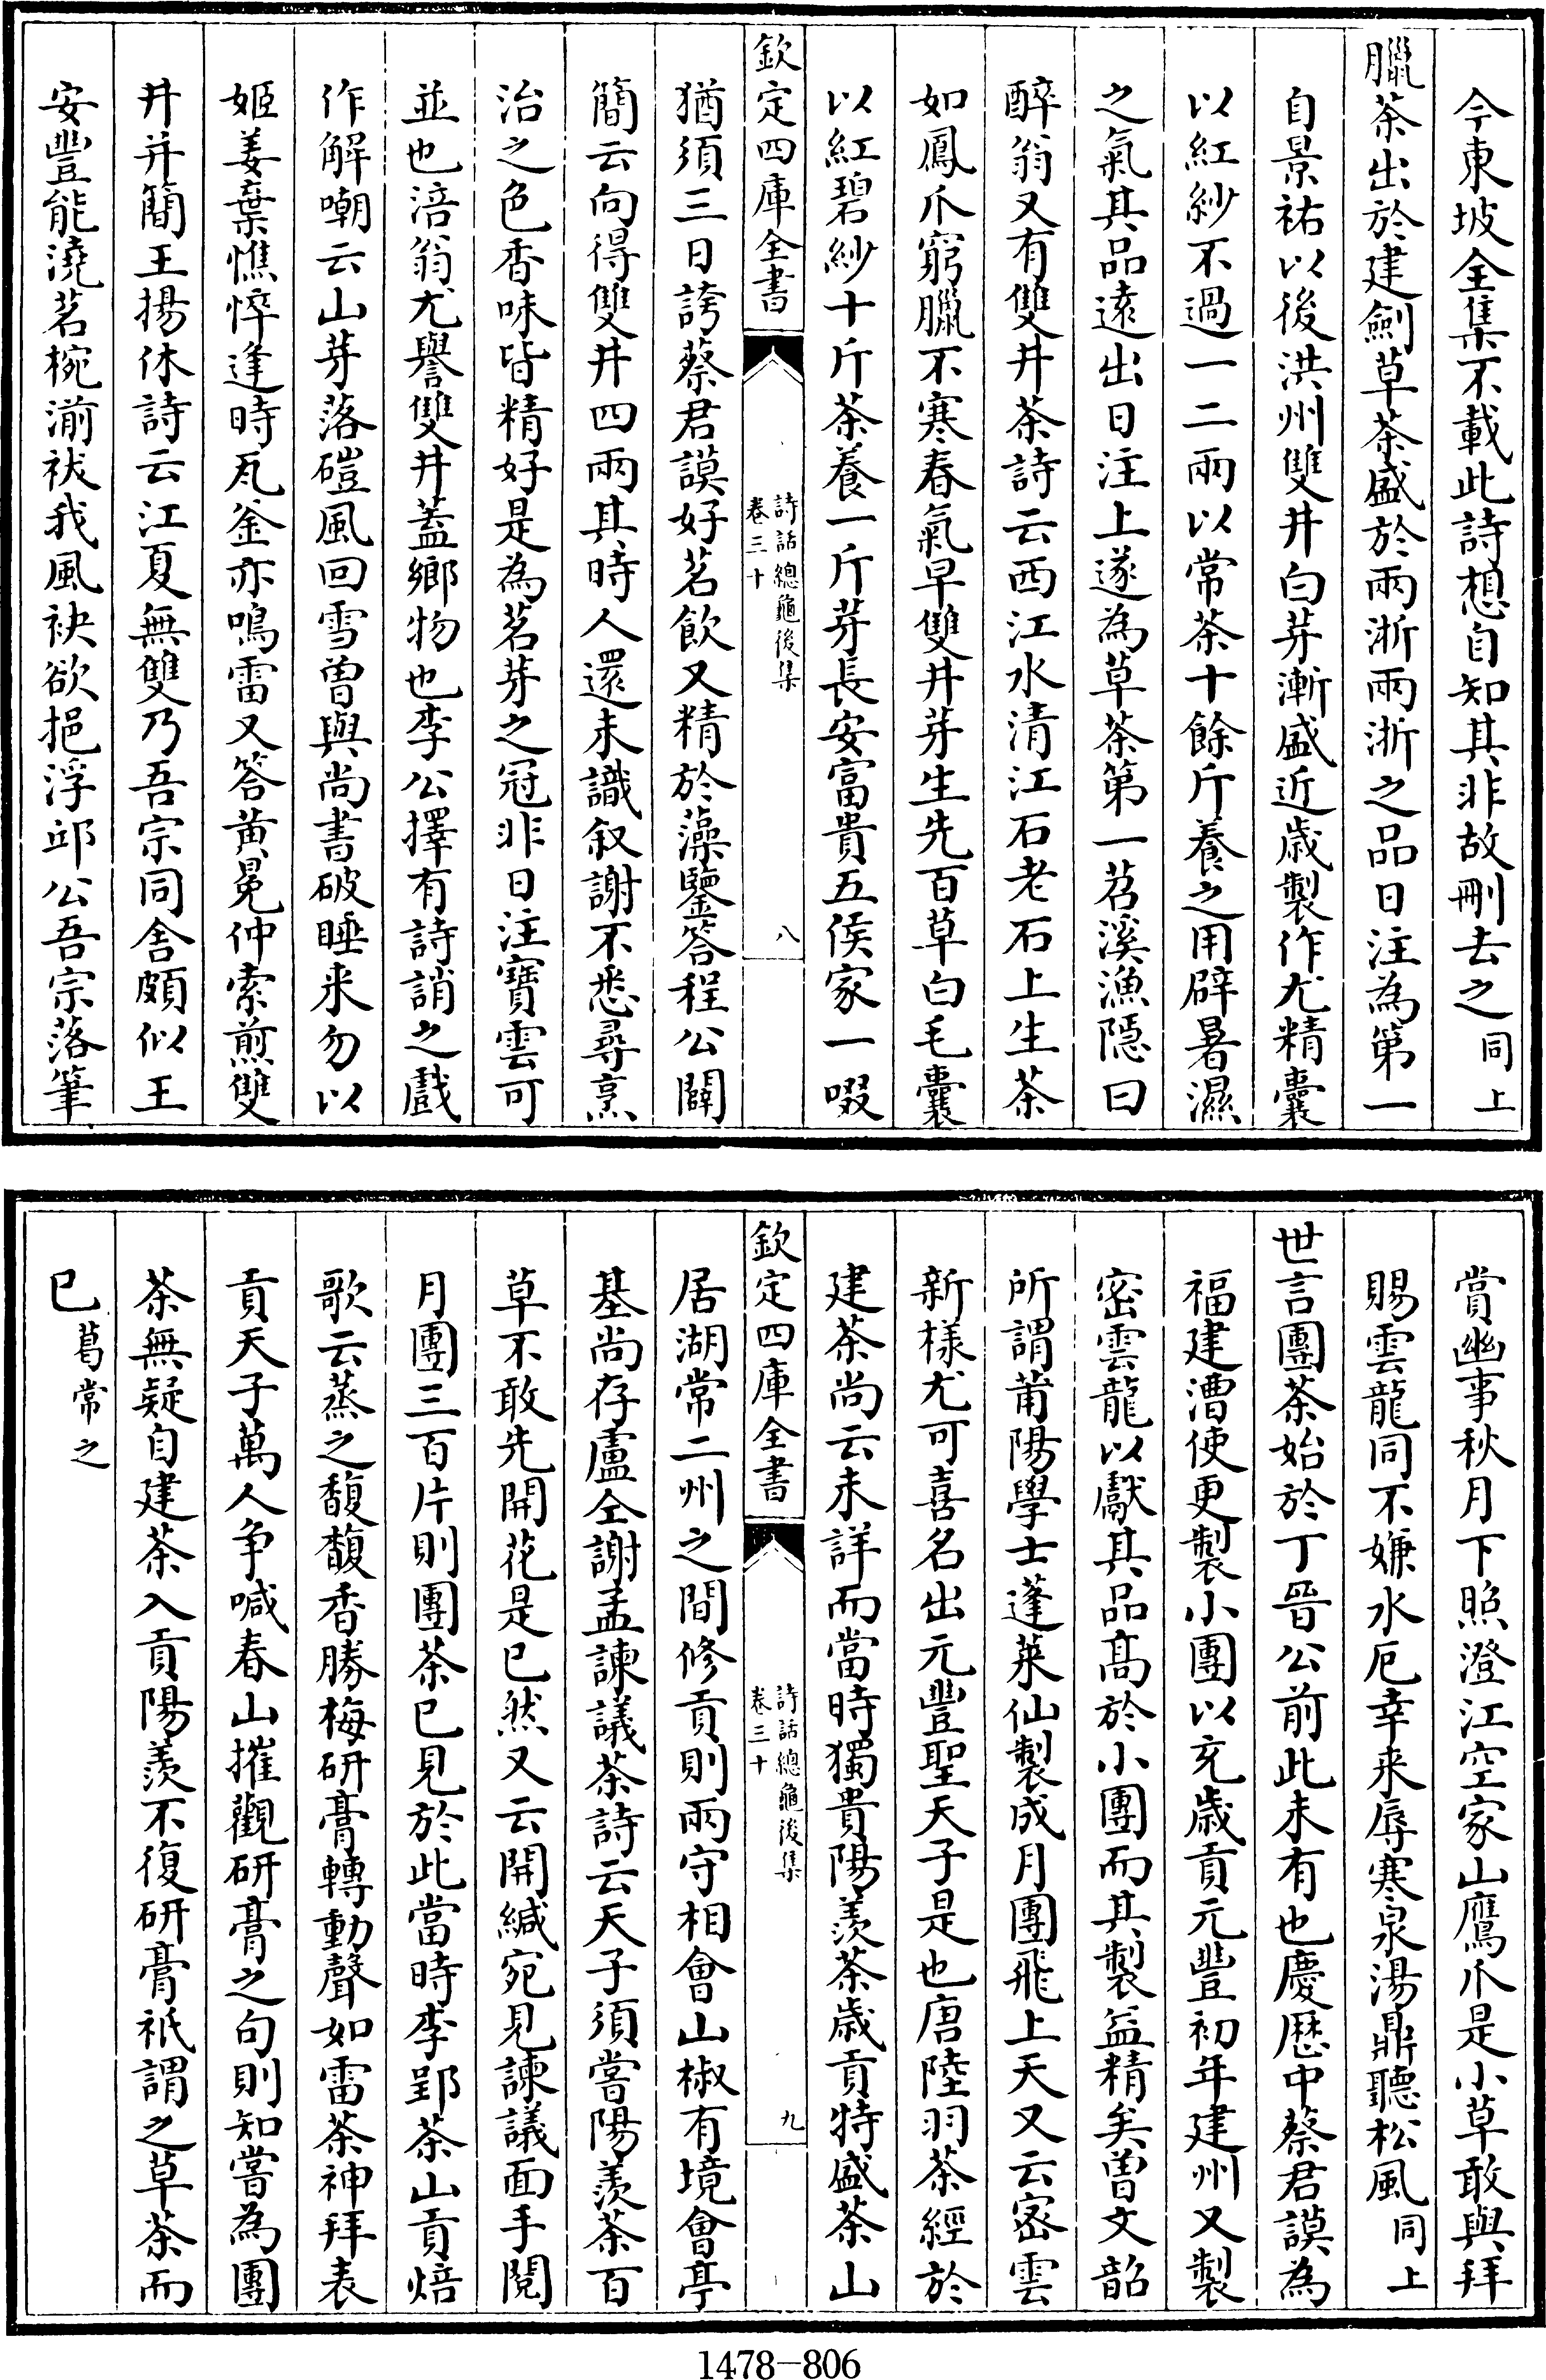 今東坡全集不載此詩想自知其非故刪去之同上
臘茶出於建劒草茶盛於兩浙兩浙之品日注為第一
自景祐以後洪州雙井白芽漸盛近嵗製作尤精囊
以紅紗不過一二兩以常茶十餘斤養之用辟暑濕
之氣其品逺出日注上遂為草茶第一苕溪漁隠曰
醉翁又有雙井茶詩云西江水清江石老石上生茶
如鳳爪窮臘不寒春氣早雙井芽生先百草白毛囊
以紅碧紗十斤茶養一斤芽長安富貴五侯家一啜
欽定四庫全書
詩話總龜後集
卷三十
八
猶須三日誇蔡君謨好茗飲又精於藻鑒答程公闢
簡云向得雙井四兩其時人還未識叙謝不悉尋烹
治之色香味皆精好是為茗芽之冠非日注寶雲可
並也涪翁尤譽雙井蓋鄉物也李公擇有詩誚之戲
作解嘲云山芽落磑風回雪曽與尚書破睡来勿以
姬姜棄憔悴逢時瓦釜亦鳴雷又答黄冕仲索煎雙
井并簡王揚休詩云江夏無雙乃吾宗同舍頗似王
安豐能澆茗椀湔祓我風袂欲挹浮邱公吾宗落筆
賞幽事秋月下照澄江空家山鷹爪是小草敢與拜
賜雲龍同不嫌水厄幸来辱寒泉湯鼎聽松風同上
世言團茶始於丁晉公前此未有也慶厯中蔡君謨為
福建漕使更製小團以充嵗貢元豐初年建州又製
密雲龍以獻其品髙於小團而其製益精矣曽文韶
所謂莆陽學士蓬萊仙製成月團飛上天又云宻雲
新様尤可喜名出元豐聖天子是也唐陸羽茶經於
建茶尚云未詳而當時獨貴陽羨茶嵗貢特盛茶山
欽定四庫全書
詩話總龜後集
卷三十
九
居湖常二州之間修貢則兩守相會山椒有境會亭
基尚存盧仝謝孟諫議茶詩云天子須嘗陽羨茶百
草不敢先開花是已然又云開緘宛見諫議面手閲
月團三百片則團茶已見於此當時李郢茶山貢焙
歌云蒸之馥馥香勝梅研膏轉動聲如雷茶神拜表
貢天子萬人争喊春山摧觀研膏之句則知嘗為團
茶無疑自建茶入貢陽羨不復研膏祇謂之草茶而
已葛常之
1478-806